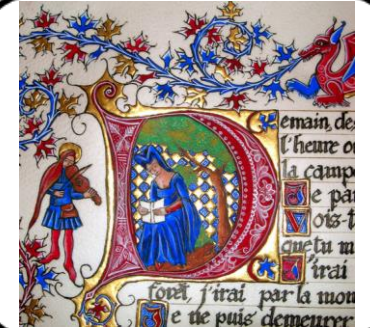 Demain, dè
l'heure o
la campa
Je par
Vois-t
que tu m
J'irai
forêt, j'irai par la mon
Je ne puis demeurer